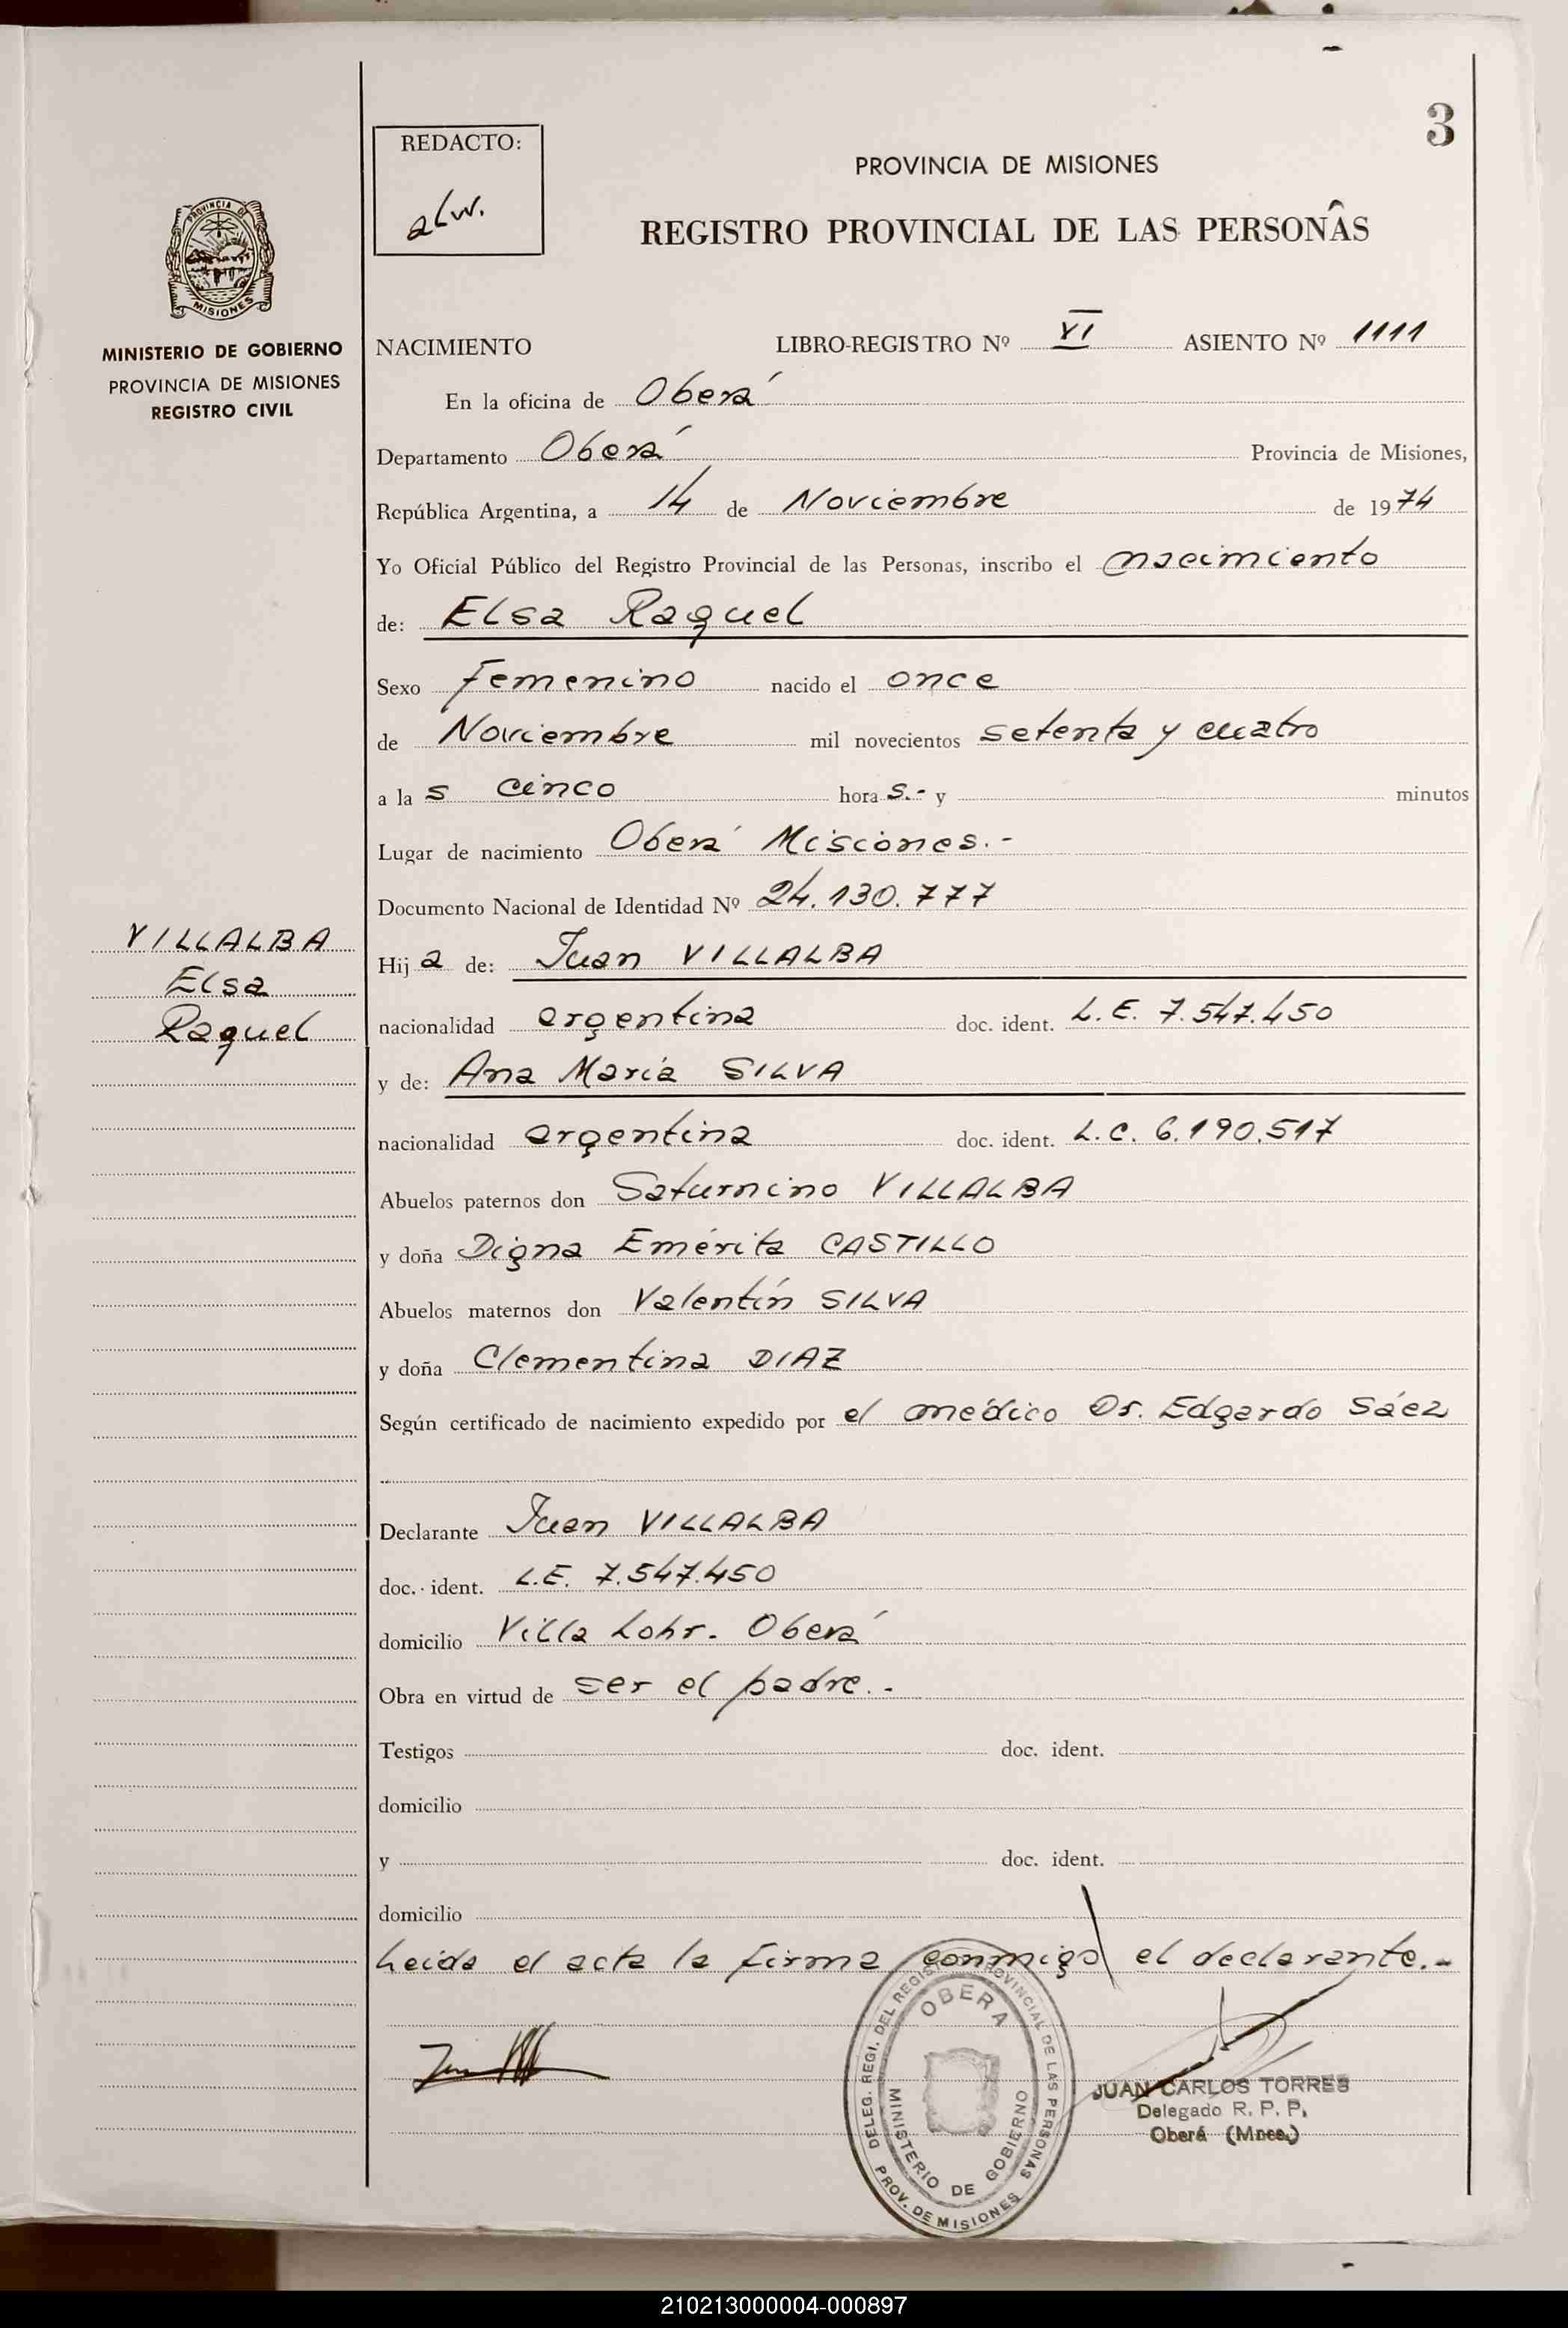 3
REDACTO:
PROVINCIA DE MISIONES
REGISTRO PROVINCIAL DE LAS PERSONAS
PROVINCIA DE
MISIONES
MINISTERIO DE GOBIERNO
PROVINCIA DE MISIONES
REGISTRO CIVIL
NACIMIENTO LIBRO-REGISTRO Nº VI ASIENTO Nº 1111
En la oficina de Oberá
Departamento Oberá Provincia de Misiones,
República Argentina, a 14 de Noviembre de 1974
Yo Oficial Público del Registro Provincial de las Personas, inscribo el nacimiento
de: Elsa Raquel
Sexo femenino nacido el once
de Noviembre mil novecientos setenta y cuatro
a las cinco horas.- y minutos
Lugar de nacimiento Oberá Misiones.-
Documento Nacional de Identidad Nº 24.130.777
VILLALBA
Elsa
Raquel
Hija de: Juan VILLALBA
nacionalidad argentina doc. ident. L.E. 7.547.450
y de: Ana María SILVA
nacionalidad argentina doc. ident. L.C. 6.190.517
Abuelos paternos don Saturnino VILLALBA
y doña Digna Emérita CASTILLO
Abuelos maternos don Valentín SILVA
y doña Clementina DIAZ
Según certificado de nacimiento expedido por el médico Dr. Edgardo Sáez
Declarante Juan VILLALBA
doc. ident. L.E. 7.547.450
domicilio Villa Lohr. Oberá
Obra en virtud de ser el padre.-
Testigos doc. ident.
domicilio
y doc. ident.
domicilio
Leida el acta la firma conmigo el declarante.-
DELEG. REGI. DEL REGIS. PROVINCIAL DE LAS PERSONAS
OBERA
MINISTERIO DE GOBIERNO
PROV. DE MISIONES
JUAN CARLOS TORRES
Delegado R. P. P.
Oberá (Mnes.)
210213000004-000897